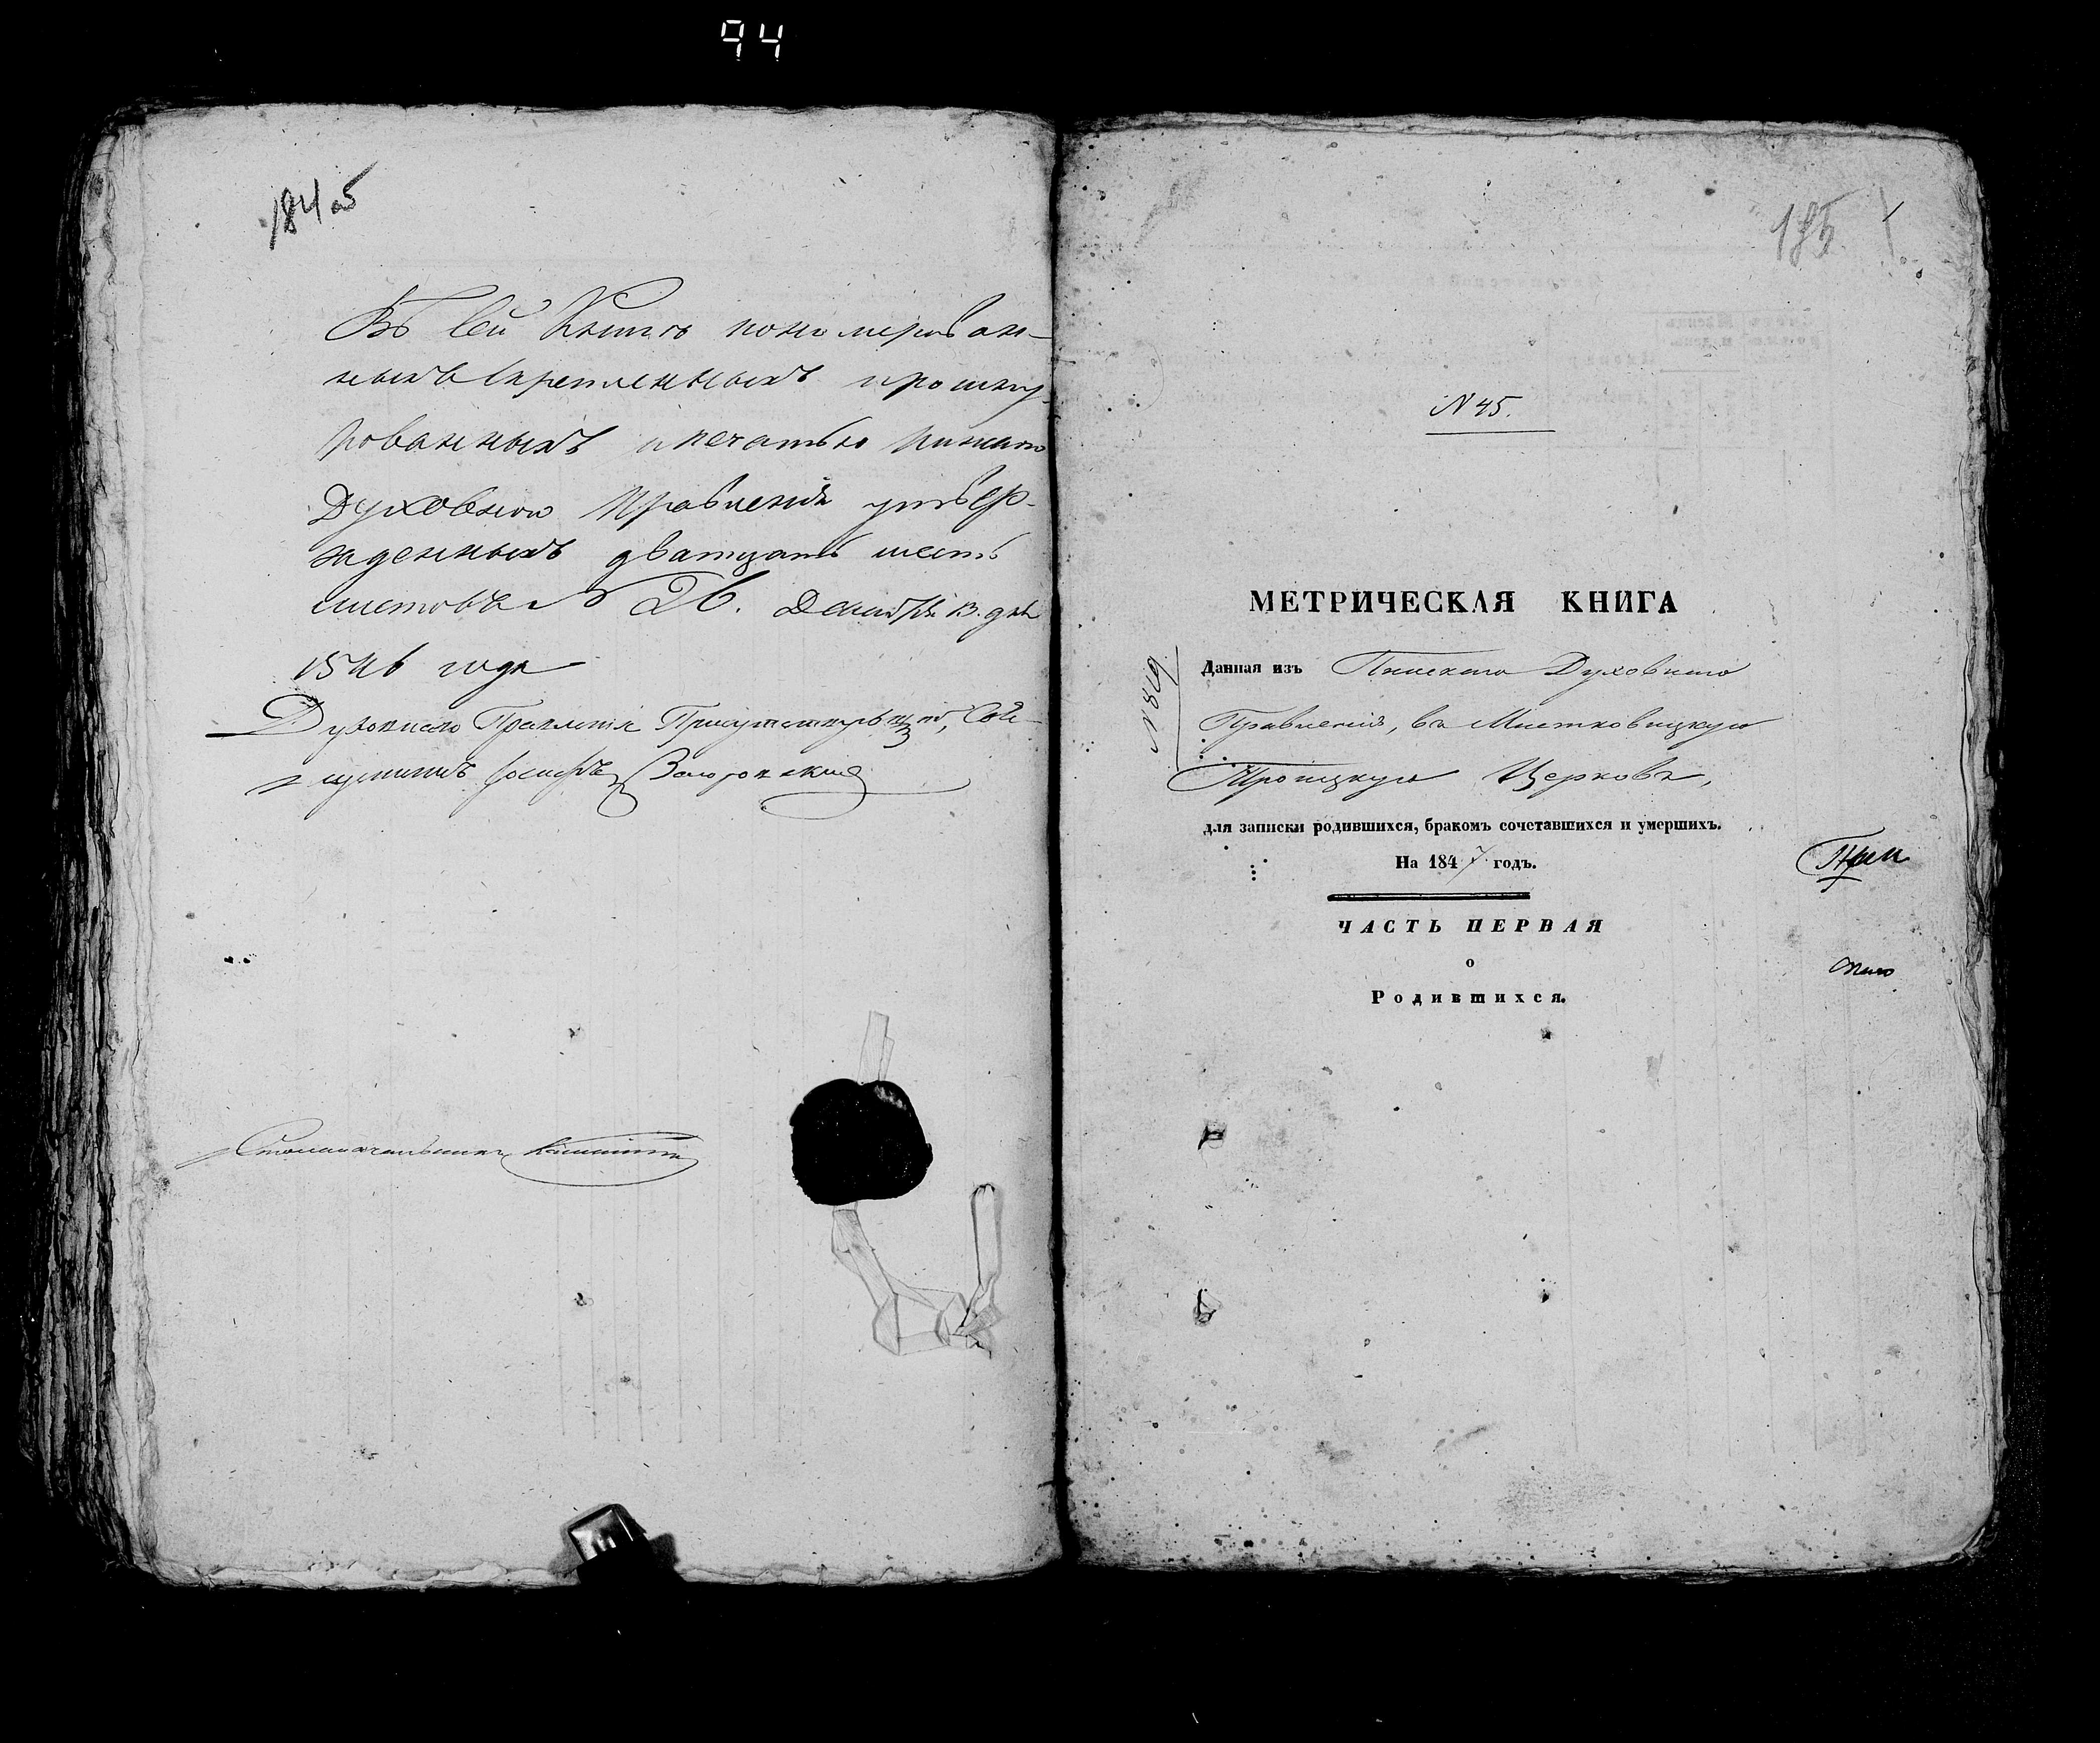 94
184 об
Въ сей Книгѣ пономерован-
ныхъ скрепленныхъ прошну-
рованныхъ и печатью Пинскаго
Духовнаго Правленія утвер-
жденныхъ дватцать шесть
листовъ № 26. Декабря 13. дня
1846 года
Духовнаго Правленія Присутствующій, Свя-
щенникъ Іосифъ
Столоначальникъ
185
1
N 45.
МЕТРИЧЕСКАЯ КНИГА
N 819
Данная изъ Пинскаго Духовнаго
Правленія, въ Мистковицкую
Троицкую Церковь,
для записки родившихся, бракомъ сочетавшихся и умершихъ.
На 1847 годъ.
ЧАСТЬ ПЕРВАЯ
о
Родившихся.